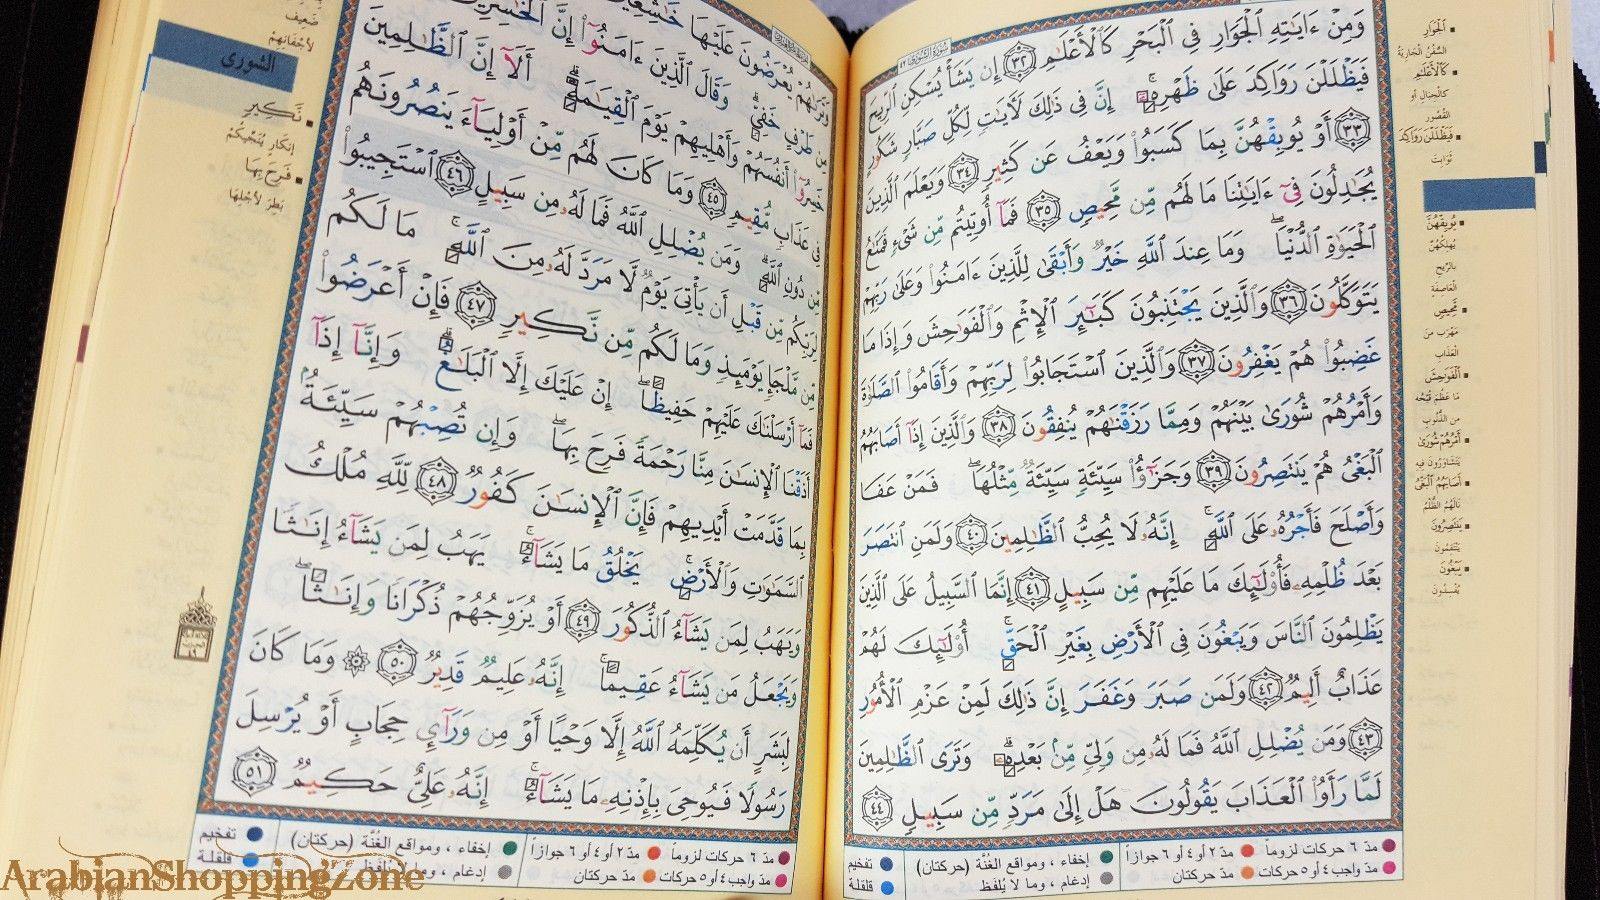 سورة الشورى ٤٢
وَمِنْ ءَايَـٰتِهِ ٱلْجَوَارِ فِى ٱلْبَحْرِ كَٱلْأَعْلَـٰمِ ٣٢ إِن يَشَأْ يُسْكِنِ ٱلرِّيحَ
فَيَظْلَلْنَ رَوَاكِدَ عَلَىٰ ظَهْرِهِۦٓ ۚ إِنَّ فِى ذَٰلِكَ لَـَٔايَـٰتٍ لِّكُلِّ صَبَّارٍ شَكُورٍ
٣٣ أَوْ يُوبِقْهُنَّ بِمَا كَسَبُوا۟ وَيَعْفُ عَن كَثِيرٍ ٣٤ وَيَعْلَمَ ٱلَّذِينَ
يُجَـٰدِلُونَ فِىٓ ءَايَـٰتِنَا مَا لَهُم مِّن مَّحِيصٍ ٣٥ فَمَآ أُوتِيتُم مِّن شَىْءٍ فَمَتَـٰعُ
ٱلْحَيَوٰةِ ٱلدُّنْيَا ۖ وَمَا عِندَ ٱللَّهِ خَيْرٌ وَأَبْقَىٰ لِلَّذِينَ ءَامَنُوا۟ وَعَلَىٰ رَبِّهِمْ
يَتَوَكَّلُونَ ٣٦ وَٱلَّذِينَ يَجْتَنِبُونَ كَبَـٰٓئِرَ ٱلْإِثْمِ وَٱلْفَوَٰحِشَ وَإِذَا مَا
غَضِبُوا۟ هُمْ يَغْفِرُونَ ٣٧ وَٱلَّذِينَ ٱسْتَجَابُوا۟ لِرَبِّهِمْ وَأَقَامُوا۟ ٱلصَّلَوٰةَ
وَأَمْرُهُمْ شُورَىٰ بَيْنَهُمْ وَمِمَّا رَزَقْنَـٰهُمْ يُنفِقُونَ ٣٨ وَٱلَّذِينَ إِذَآ أَصَابَهُمُ
ٱلْبَغْىُ هُمْ يَنتَصِرُونَ ٣٩ وَجَزَٰٓؤُا۟ سَيِّئَةٍ سَيِّئَةٌ مِّثْلُهَا ۖ فَمَنْ عَفَا
وَأَصْلَحَ فَأَجْرُهُۥ عَلَى ٱللَّهِ ۚ إِنَّهُۥ لَا يُحِبُّ ٱلظَّـٰلِمِينَ ٤٠ وَلَمَنِ ٱنتَصَرَ
بَعْدَ ظُلْمِهِۦ فَأُو۟لَـٰٓئِكَ مَا عَلَيْهِم مِّن سَبِيلٍ ٤١ إِنَّمَا ٱلسَّبِيلُ عَلَى ٱلَّذِينَ
يَظْلِمُونَ ٱلنَّاسَ وَيَبْغُونَ فِى ٱلْأَرْضِ بِغَيْرِ ٱلْحَقِّ ۚ أُو۟لَـٰٓئِكَ لَهُمْ
عَذَابٌ أَلِيمٌ ٤٢ وَلَمَن صَبَرَ وَغَفَرَ إِنَّ ذَٰلِكَ لَمِنْ عَزْمِ ٱلْأُمُورِ
٤٣ وَمَن يُضْلِلِ ٱللَّهُ فَمَا لَهُۥ مِن وَلِىٍّ مِّنۢ بَعْدِهِۦ ۗ وَتَرَى ٱلظَّـٰلِمِينَ
لَمَّا رَأَوُا۟ ٱلْعَذَابَ يَقُولُونَ هَلْ إِلَىٰ مَرَدٍّ مِّن سَبِيلٍ ٤٤
ٱلْجَوَارِ
السُّفُنُ الجَارِيَةُ
كَٱلْأَعْلَـٰمِ
كالجبال أو
القصور
فَيَظْلَلْنَ رَوَاكِدَ
ثَوَابِتَ
يُوبِقْهُنَّ
يُهْلِكْهُنَّ
بالرِّيحِ
العَاصِفَةِ
مَّحِيصٍ
مَهْرَبٍ من
العَذَابِ
ٱلْفَوَٰحِشَ
ما عَظُمَ قُبْحُه
من الذُّنُوبِ
أَمْرُهُمْ شُورَىٰ
يَتَشَاوَرُونَ فِيهِ
أَصَابَهُمُ ٱلْبَغْىُ
نَالَهُمُ الظُّلْمُ
يَنتَصِرُونَ
يَنْتَقِمُونَ
يَبْغُونَ
يُفْسِدُونَ
مدّ ٦ حركات لزوماً مدّ ٢ أو ٤ أو ٦ جوازاً إخفاء ، ومواقع الغُنَّة (حركتان) تفخيم
مدّ واجب ٤ أو ٥ حركات مدّ حركتان إدغام ، وما لا يُلفَظ قلقلة
وَتَرَىٰهُمْ يُعْرَضُونَ عَلَيْهَا خَـٰشِعِينَ
مِن طَرْفٍ خَفِىٍّ ۗ وَقَالَ ٱلَّذِينَ ءَامَنُوٓا۟ إِنَّ ٱلْخَـٰسِرِينَ
خَسِرُوٓا۟ أَنفُسَهُمْ وَأَهْلِيهِمْ يَوْمَ ٱلْقِيَـٰمَةِ ۗ أَلَآ إِنَّ ٱلظَّـٰلِمِينَ
فِى عَذَابٍ مُّقِيمٍ ٤٥ وَمَا كَانَ لَهُم مِّنْ أَوْلِيَآءَ يَنصُرُونَهُم
مِّن دُونِ ٱللَّهِ ۗ وَمَن يُضْلِلِ ٱللَّهُ فَمَا لَهُۥ مِن سَبِيلٍ ٤٦ ٱسْتَجِيبُوا۟
لِرَبِّكُم مِّن قَبْلِ أَن يَأْتِىَ يَوْمٌ لَّا مَرَدَّ لَهُۥ مِنَ ٱللَّهِ ۚ مَا لَكُم
مِّن مَّلْجَإٍ يَوْمَئِذٍ وَمَا لَكُم مِّن نَّكِيرٍ ٤٧ فَإِنْ أَعْرَضُوا۟
فَمَآ أَرْسَلْنَـٰكَ عَلَيْهِمْ حَفِيظًا ۖ إِنْ عَلَيْكَ إِلَّا ٱلْبَلَـٰغُ ۗ وَإِنَّآ إِذَآ
أَذَقْنَا ٱلْإِنسَـٰنَ مِنَّا رَحْمَةً فَرِحَ بِهَا ۖ وَإِن تُصِبْهُمْ سَيِّئَةٌۢ
بِمَا قَدَّمَتْ أَيْدِيهِمْ فَإِنَّ ٱلْإِنسَـٰنَ كَفُورٌ ٤٨ لِّلَّهِ مُلْكُ
ٱلسَّمَـٰوَٰتِ وَٱلْأَرْضِ ۚ يَخْلُقُ مَا يَشَآءُ ۚ يَهَبُ لِمَن يَشَآءُ إِنَـٰثًا
وَيَهَبُ لِمَن يَشَآءُ ٱلذُّكُورَ ٤٩ أَوْ يُزَوِّجُهُمْ ذُكْرَانًا وَإِنَـٰثًا ۖ
وَيَجْعَلُ مَن يَشَآءُ عَقِيمًا ۚ إِنَّهُۥ عَلِيمٌ قَدِيرٌ ٥٠ ۞ وَمَا كَانَ
لِبَشَرٍ أَن يُكَلِّمَهُ ٱللَّهُ إِلَّا وَحْيًا أَوْ مِن وَرَآئِ حِجَابٍ أَوْ يُرْسِلَ
رَسُولًا فَيُوحِىَ بِإِذْنِهِۦ مَا يَشَآءُ ۚ إِنَّهُۥ عَلِىٌّ حَكِيمٌ ٥١
ضَعِيفِ
لأجْفَانِهِمْ
الشورى
نَّكِيرٍ
إنكَارٍ يُنْجِيكُمْ
فَرِحَ بِهَا
بَطِرَ لأَجْلِهَا
مدّ ٦ حركات لزوماً مدّ ٢ أو ٤ أو ٦ جوازاً إخفاء ، ومواقع الغُنَّة (حركتان) تفخيم
مدّ واجب ٤ أو ٥ حركات مدّ حركتان إدغام ، وما لا يُلفَظ قلقلة
ArabianShoppingZone